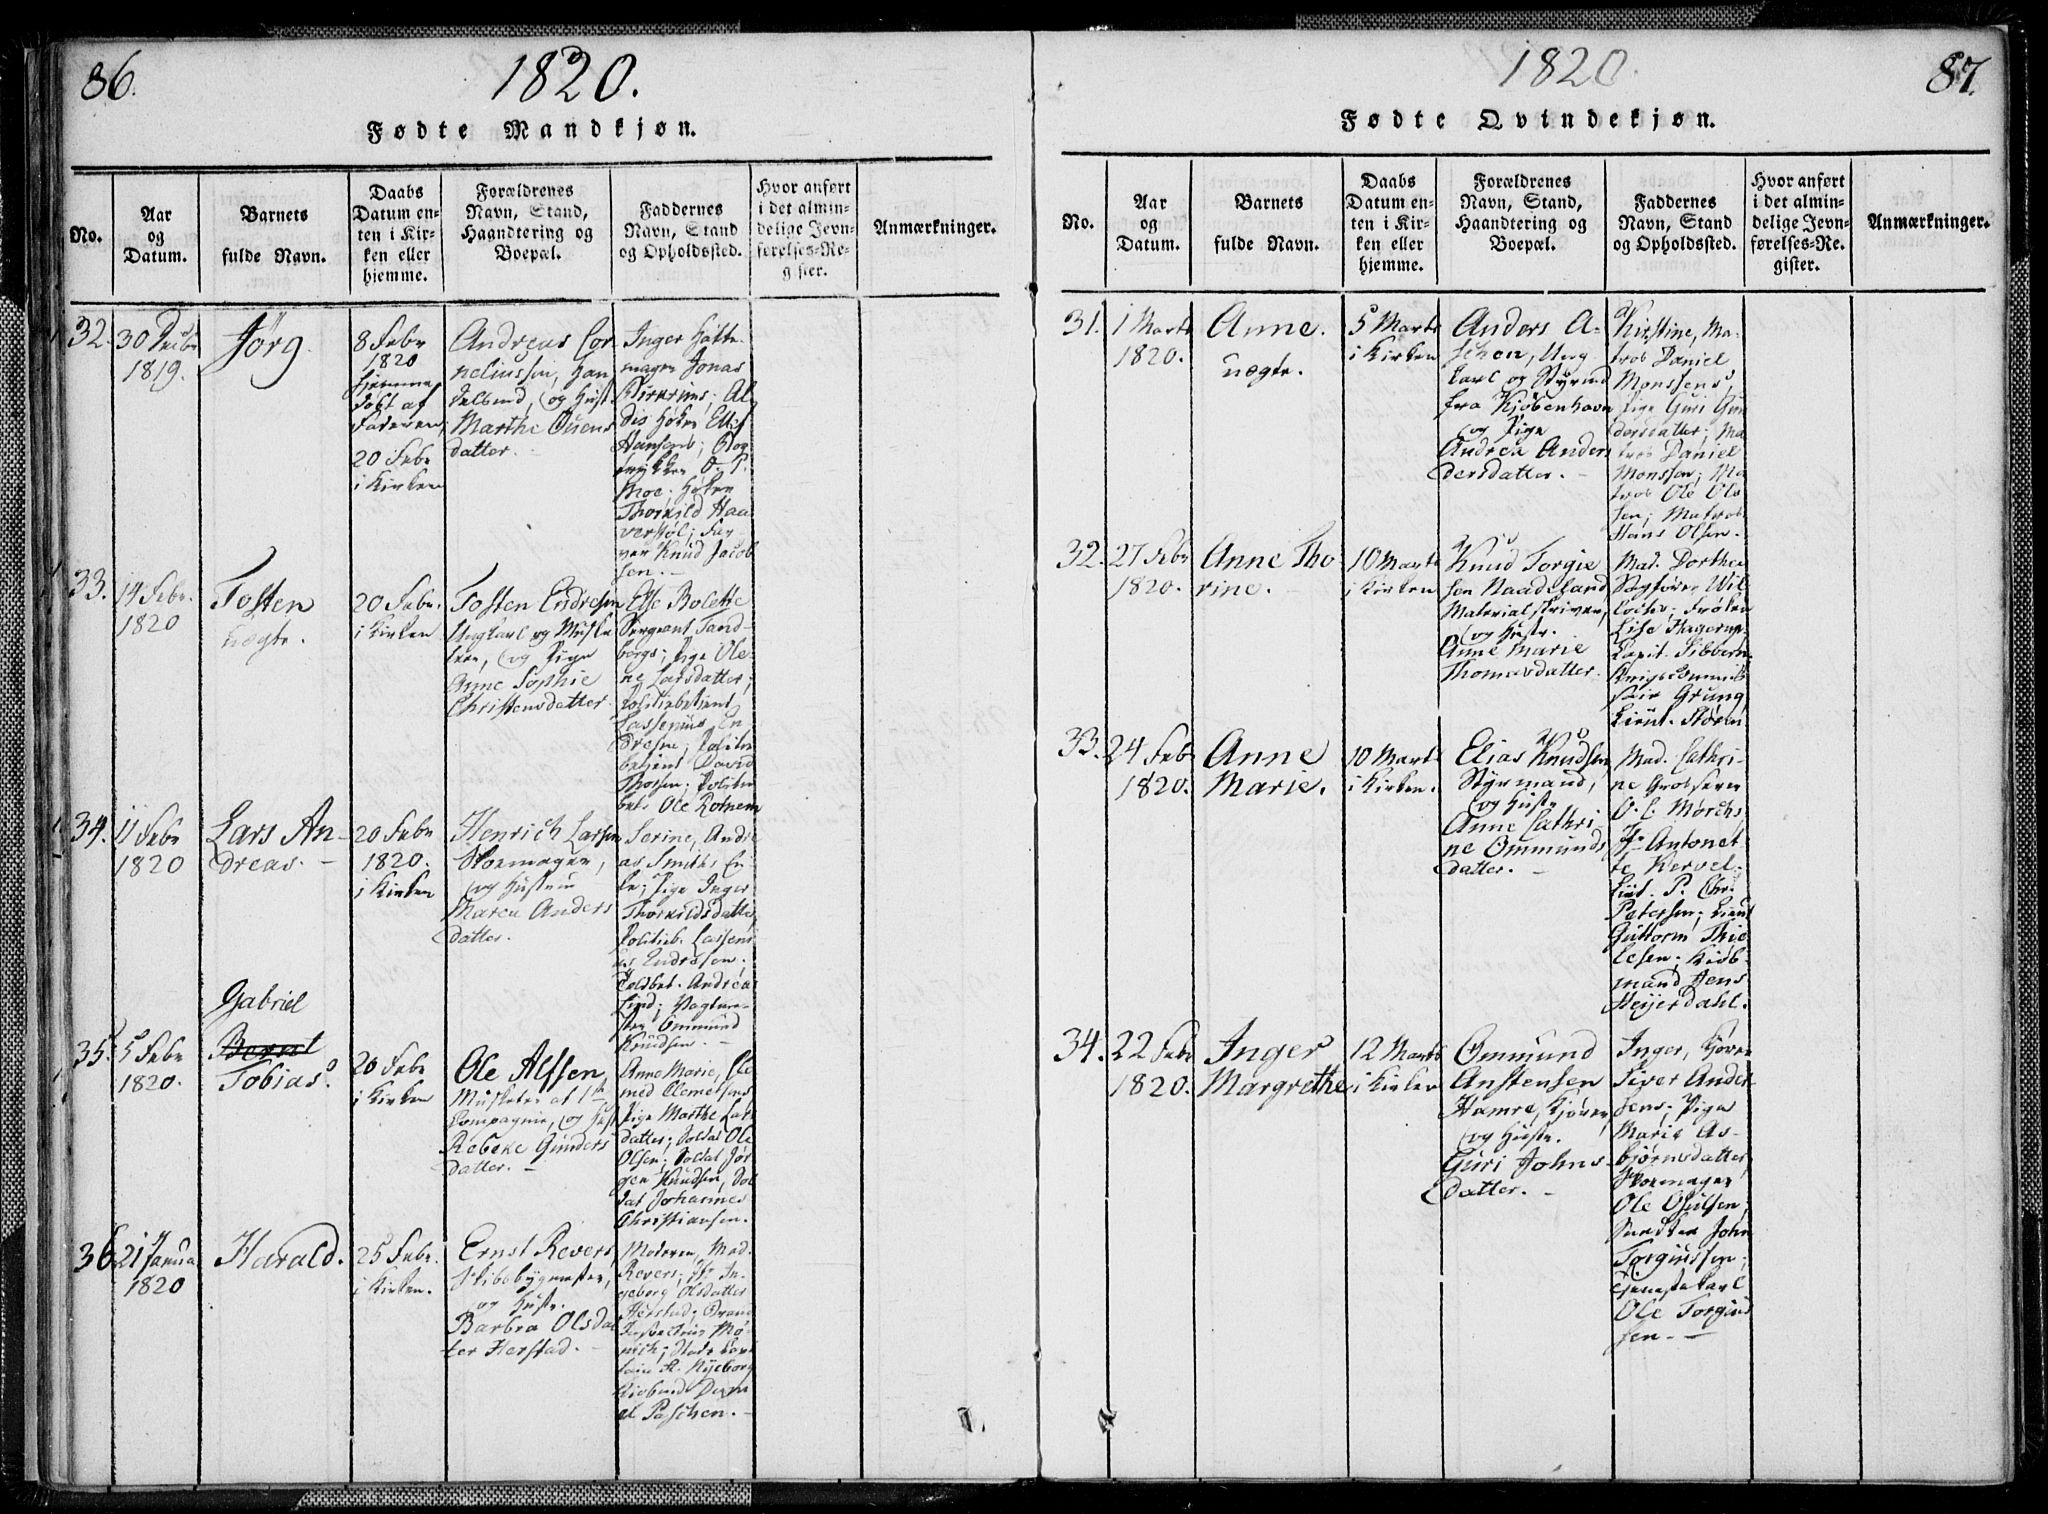 86.
1820.
Fødte Mandkjøn.
No.
Aar
og
Datum.
Barnets
fulde Navn.
Daabs
Datum en-
ten i Kir-
ken eller
hjemme.
Forældrenes
Navn, Stand,
Haandtering og
Boepæl.
Faddernes
Navn, Stand
og Opholdssted.
Hvor anført
i det almin-
delige Jevn-
førelses-Re-
gister.
Anmærkninger.
32.
30
1819.
Jørg.
8 Febr
1820
hjemme
døbt af
Faderen,
20 Febr
i Kirken
Andreas Cor-
neliussen, Han-
delbmd, og Hust
Marthe Ouens
datter.
Inger Hatte-
mager Jonas
Al-
dis Høker Ellef
Hansens;
O. P.
Moe; Høker
Thorkild Haa
verstøl; Far
ver Knud Jacob
sen.
33.
14 Febr.
1820
Tosten
uægte.
20 Febr.
i Kirken
Tosten Endresen
Ungkarl og Muske
teer, og Pige
Anne Sophie
Christensdatter
Else Bolette
Sergeant Tand-
bergs; Pige Ole-
ne Larsdatter;
Politiebetient
Lassenius En
dresen; Politie
betient David
Thorsen; Politie
bet. Ole Rotnem
34.
11 Febr
1820
Lars An-
dreas. -
20 Febr
1820.
i Kirken
Henrich Larsen
Skomager,
og Hustru
Maren Anders
datter.
Serine, Andre
as Smiths En-
ke; Pige Inger
Thorkildsdatter,
Politieb. Lasseni
us Endresen;
Toldbet. Andreas
Lind; Vagtme-
ster Ommund
Knudsen. -
35.
5 Febr
1820.
Gabriel
Bernt
Tobias.
20 Febr
i Kirken
Ole Alfsen,
Musketer af 1ste
Compagnie, og Hust
Rebeke Gunders
datter. -
Anne Marie, Cle
med Clemetsens
Pige Marthe Lars
datter; Soldat Ole
Olsen; Soldat Jør
gen Knudsen, Sol
dat Johannes
Christiansen.
36.
21 Janua
1820
Harald.
25 Febr.
i Kirken.
Ernst Revers,
Skibsbygmester,
og Hustr.
Barbra Olsdat
ter Herstad. -
Moderen, Mad.
Revers; Jfr In-
geborg Olsdatter
Herstad; Brand
Mø-
nich;
Nyeborg
Paschen. -
1820.
87.
Fødte Qvindekjøn.
No.
Aar
og
Datum.
Barnets
fulde Navn.
Daabs
Datum en-
ten i Kir-
ken eller
hjemme.
Forældrenes
Navn, Stand,
Haandtering og
Boepæl.
Faddernes
Navn, Stand
og Opholdssted.
Hvor anført
i det almin-
delige Jevn-
førelses-Re-
gister.
Anmærkninger.
31.
1 Marts
1820.
Anne.
uægte.
5 Marts
i Kirken
Anders A-
schen, Ung
karl og Styrmd
fra Kjøbenhavn
og Pige
Andrea Anders
dersdatter. -
Kirstine, Ma-
tros Daniel
Monssens,
Pige Guri Gun
dersdatter; Ma
tros Daniel
Monssen; Ma
tros Ole Ols
sen; Matros
Hans Olsen.
32.
27 Febr
1820.
Anne Tho
rine. -
10 Marts
i Kirken
Knud Torgie
sen Naadeland
Materialskriver,
og Hustr.
Anne Marie
Thomasdatter.
Mad. Dorthea
Sogfører Wil
lochs; Frøken
Lise Hagerup,
Capit. Sibbern
Krigscommis
sair Grung
Lieut. Støren
33.
24 Febr
1820.
Anne
Marie.
10 Marts
i Kirken.
Elias Knudsen,
Styrmand,
og Hustr
Anne Cathri
ne Ommunds
datter. -
Mad. Cathri-
ne Grosserer
O. C. Mørchs
Jfr Antonet
te Kervel;
Liut. P. Chr.
Petersen; Lieut
Guttorm Thie
lesen; Kiøb-
mand Jens
Heyerdahl.
34.
22 Febr
1820.
Inger
Margrethe
12 Marts
i Kirken
Ommund
Anstensen
Hamre, Kjører,
og Hustr.
Guri Johns-
datter. -
Inger, Kjører
Siver Ander
sens; Pige
Marie As-
bjørnsdatter,
Skomager
Ole Osulsen,
John
Torgiussen;
Tjenestekarl
Ole Torgius
sen. -